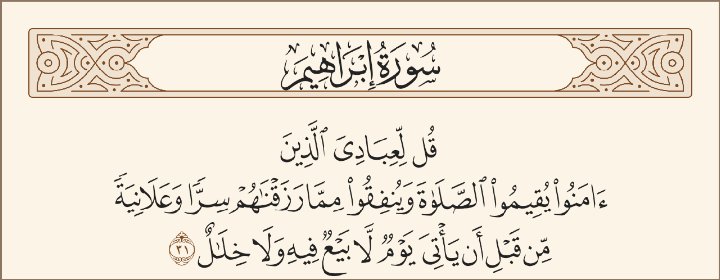 سُورَةُ إِبْرَاهِيمَ
قُل لِّعِبَادِىَ ٱلَّذِينَ
ءَامَنُوا۟ يُقِيمُوا۟ ٱلصَّلَوٰةَ وَيُنفِقُوا۟ مِمَّا رَزَقْنَـٰهُمْ سِرًّا وَعَلَانِيَةً
مِّن قَبْلِ أَن يَأْتِىَ يَوْمٌ لَّا بَيْعٌ فِيهِ وَلَا خِلَـٰلٌ ٣١